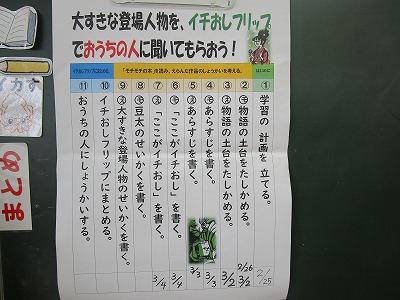 大すきな登場人物を、イチおしフリップ
でおうちの人に聞いてもらおう!
はじめに
「モチモチの木」を読み、えらんだ作品のしょうかいを考える。
イチおしフリップにまとめる。
① 学習の 計画を 立てる。 2/25
② ㋲物語の土台をたしかめる。 2/26 3/2
③ 物語の土台をたしかめる。 3/2
④ ㋲あらすじを書く。 3/3
⑤ あらすじを書く。 3/3
⑥ ㋲「ここがイチおし」を書く。 3/4
⑦ 「ここがイチおし」を書く。 3/4
⑧ ㋲豆太のせいかくを書く。
⑨ 大すきな登場人物のせいかくを書く。
⑩ イチおしフリップにまとめる。
⑪ おうちの人にしょうかいする。
まとめ